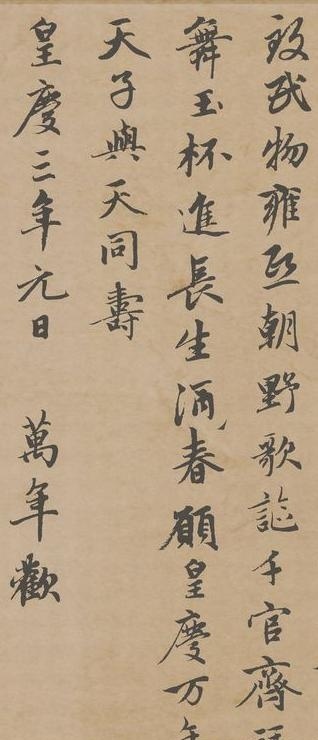 致民物雍熙朝野歌謳千官齊
舞玉杯進長生酒春願皇慶万年
天子與天同壽
皇慶三年元日　萬年歡